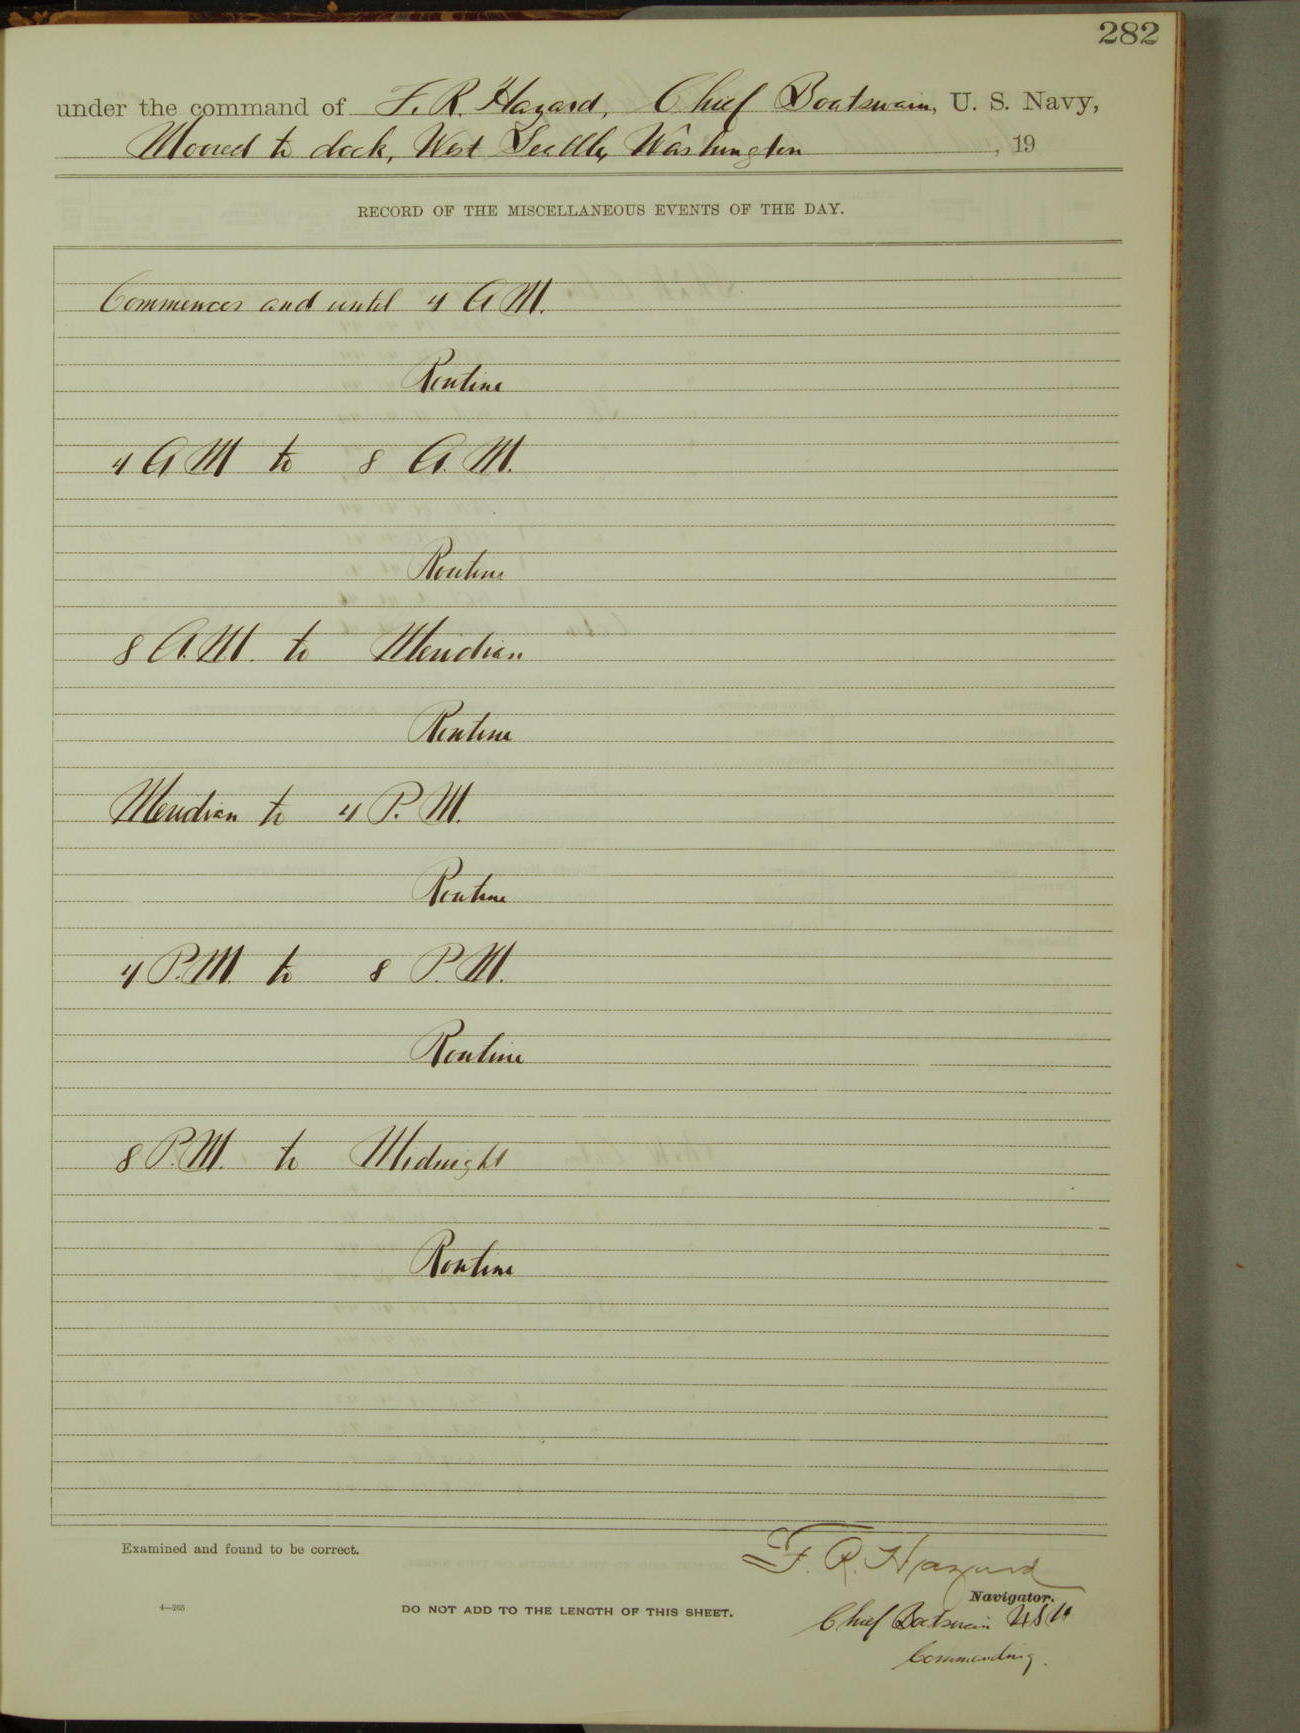 282
under the command of F. R. Hazard, Chief Boatswain, U. S. Navy,
Moored to dock, West Seattle, Washington , 19
RECORD OF THE MISCELLANEOUS EVENTS OF THE DAY.
Commences and until 4 A M.
Routine
4 A M to 8 A. M.
Routine
8 A. M. to Meridian
Routine
Meridian to 4 P. M.
Routine
4 P. M. to 8 P. M.
Routine
8 P. M. to Midnight
Routine
Examined and found to be correct.
F. R. Hazard
Navigator.
4—265
DO NOT ADD TO THE LENGTH OF THIS SHEET.
Chief Boatswain USN
Commanding.